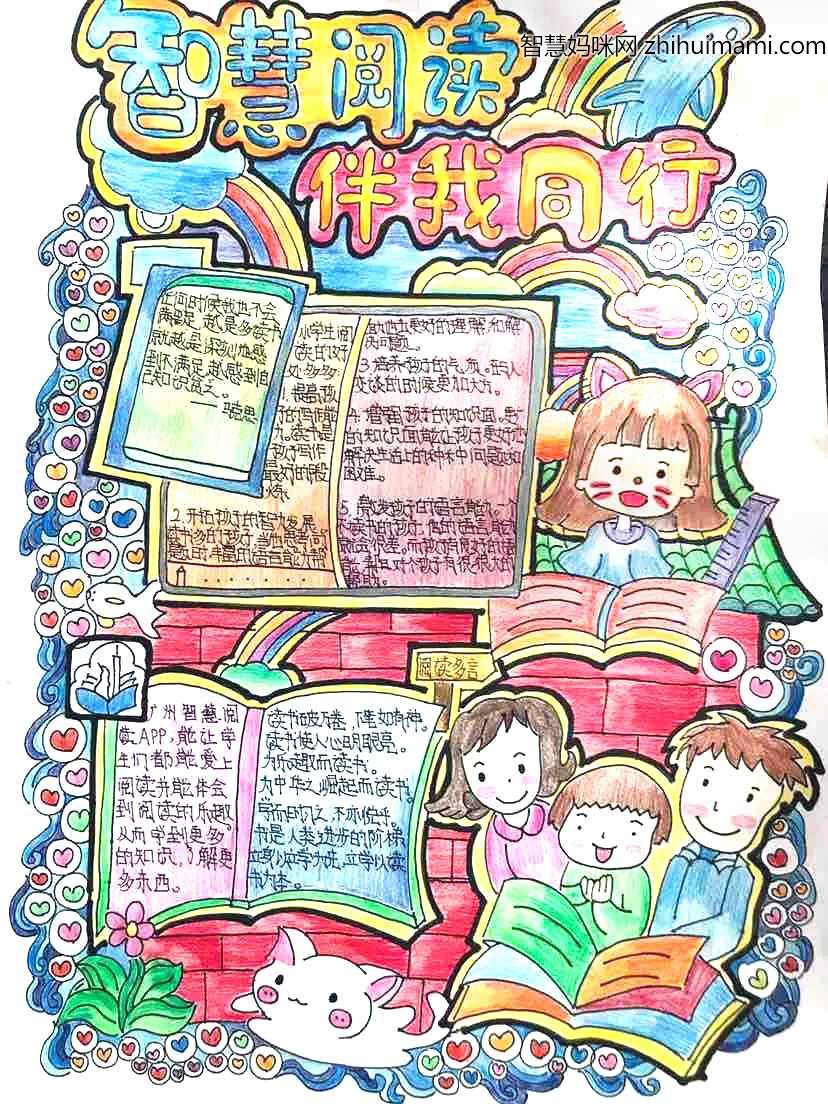 智慧妈咪网 zhihuimami.com
智慧阅读
伴我同行
任何时候我也不会
满足,越是多读书,
就越是深刻地感
到不满足,越感到自
己知识贫乏。
——马克思
小学生阅
读的好
处多多:
1.提高孩
子的写作能
力。读书是
孩子写作
最好的锻
炼。
2.开拓孩子的智力发展。
助他更好的理解和解
决问题。
交谈的时候更加大方。
4.增强孩子的知识面。更广
的知识面能让孩子更好地
解决生活上的种种问题和
困难。
5.激发孩子的语言能力。一个
不读书的孩子,他的语言能力
就会很差。而孩子有良好的语
阅读多言
广州智慧阅
读APP,能让学
生们都能爱上
阅读并能体会
到阅读的乐趣。
从而学到更多
的知识,了解更
多东西。
读书破万卷,下笔如有神。
读书使人心明眼亮。
为乐趣而读书。
为中华之崛起而读书。
学而时习之,不亦悦乎。
书是人类进步的阶梯。
立身以立学为先,立学以读
书为本。